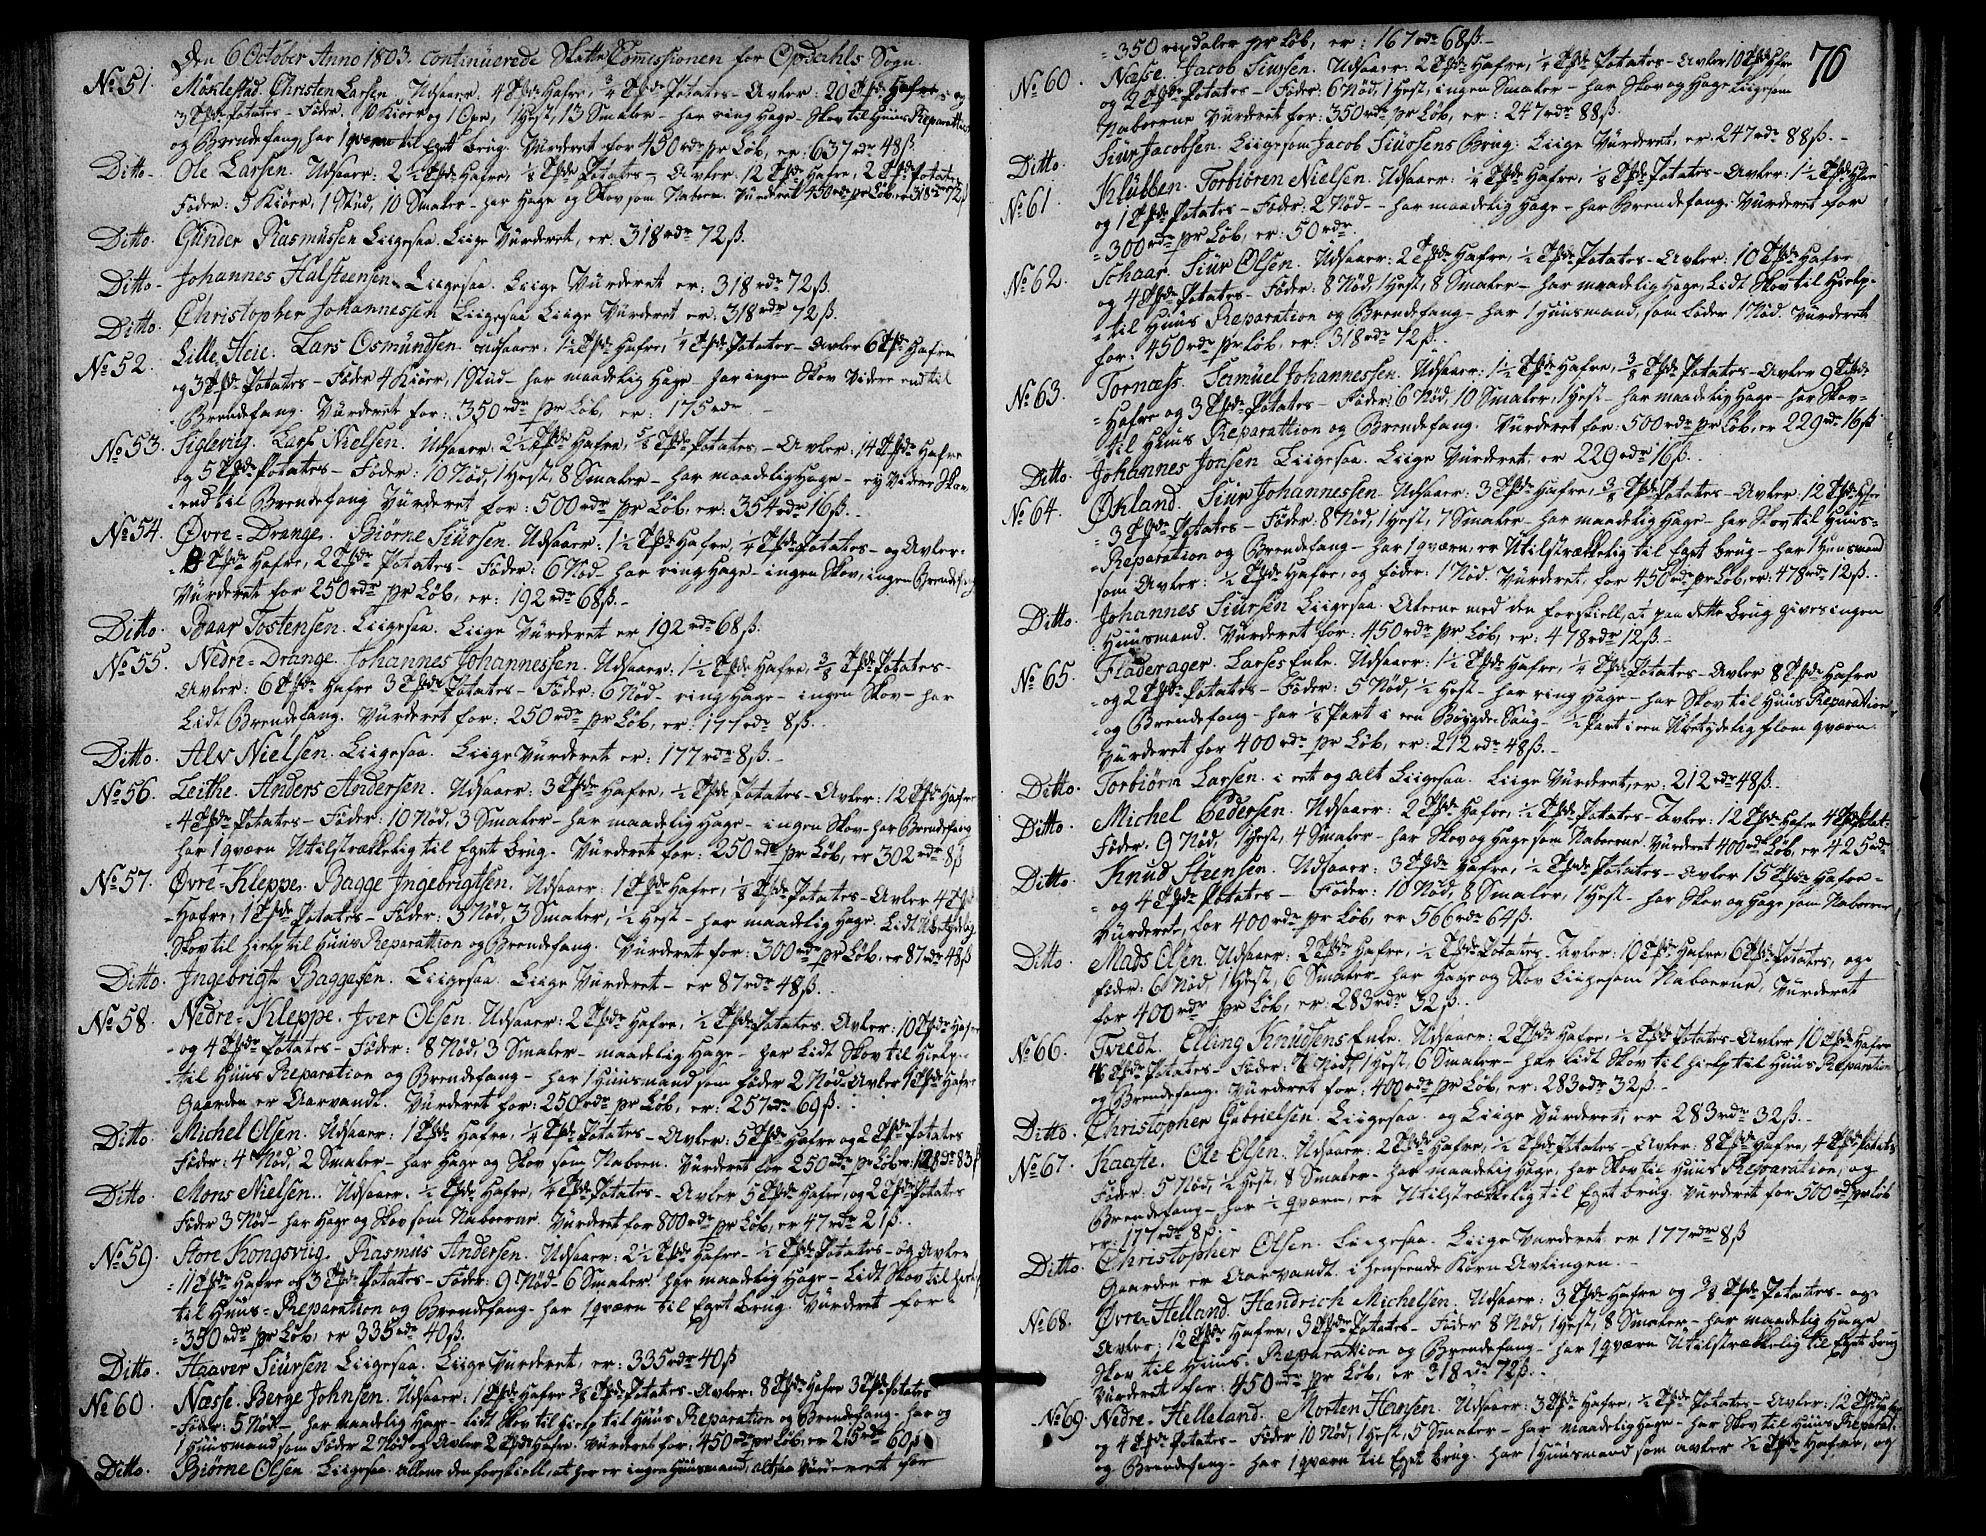 Den 6 October Anno 1803. continuerede Skatte Comissionen for Opdahls Sogn.
No 51. Moxlestad. Christen Larsen. Udsaaer: 4 Tønder Hafre, 3/4 Tønde Potates - Avler: 20 Tønder Hafre og
3 Tønder Potates - Föder: 10 Kiör og 1 Oxe, 1 Hest, 13 Smaler - har ring Hage - Skov til Huus Reparation
og Brendefang, har 1 qværn til Eget brug. Vurderet for 450 rdr pr Löb, er: 637 rdr 48 ß.
Ditto. Ole Larsen. Udsaaer: 2 1/2 Tønde Hafre, Tønde Potates - Avler: 12 Tønder Hafre, 2 Tønder Potates
Föder: 5 Kiöer, 1 Stüd, 10 Smaler - har Hage og Skov som Naboen. Vurderet 450 rdr pr Löb, er 318 rdr 72 ß
Ditto. Günder Rasmüssen Liigesaa. Liige Vürderet, er: 318 rdr 72 ß.
Ditto - Johannes Halsteensen. Liigesaa. Liige Vürderet er: 318 rdr 72 ß.
Ditto. Christopher Johannessen Liigesaa Liige Vürderet er: 318 rdr 72 ß.
No 52. Lille Heie. Lars Osmündsen. Udsaaer: 1 1/2 Tønde Hafre, 1/4 Tønde Potates - Avler 6 Tønder Hafre
og 3 Tønder Potates - Föder 4 Kiöer, 1 Stüd - har maadelig Hage - har ingen Skov Videre end til
Brendefang. Vürderet for: 350 rdr pr Löb, er: 175 rdr -
No 53. Siglevig. Lars Nielsen. Udsaaer: 2 1/2 Tønde Hafre, 5/8 Tønde Potates - Avler: 14 Tønder Hafre
og 5 Tønder Potates - Föder: 10 Nöd, 1 Hest, 8 Smaler - har maadelig Hage - ey Videre Skov
end til Brendefang Vürderet for: 500 rdr pr Löb, er: 354 rdr 16 ß. -
No 54. Øvre-Drange. Biörne Siürsen. Udsaaer: 1 1/2 Tønde Hafre, 1/4 Tønde Potates - og Avler:
8 Tønder Hafre, 2 Tønder Potates - Föder: 6 Nöd - har ring Hage - ingen Skov, ingen Brendefang
Vürderet for 250 rdr pr Löb, er: 192 rdr 68 ß. -
Ditto. Baar Tostensen. Liigesaa. Liige Vürderet er 192 rdr 68 ß.
No 55. Nedre-Drange. Johannes Johannessen. Udsaaer: 1 1/2 Tønde Hafre, 3/8 Tønde Potates -
Avler: 6 Tønder Hafre 3 Tønder Potates - Föder: 6 Nöd - ring Hage - ingen Skov - har
Lidt Brendefang. Vürderet for: 250 rdr pr Löb, er: 177 rdr 8 ß.
Ditto. Alv Nielsen. Liigesaa. Liige Vürderet er: 177 rdr 8 ß. -
No 56. Leithe. Anders Andersen. Udsaaer: 3 Tønder Hafre, 1/2 Tønde Potates - Avler: 12 Tønder Hafre
4 Tønder Potates - Föder: 10 Nöd, 3 Smaler - har maadelig Hage - ingen Skov - har Brendefang
har 1 qværn Utilstrækkelig til Eget brug. Vürderet for: 250 rdr pr Löb, er 302 rdr 8 ß
No 57. Øvre-Kleppe. Bagge Ingebrigtsen. Udsaaer: 1 Tønde Hafre, 1/8 Tønde Potates - Avler 4 Tønder
Hafre, 1 Tønde Potates - Föder: 5 Nöd, 3 Smaler, 1/2 Hest - har maadelig Hage. Lidt Ubetydelig
Skov til hielp til Huus Reparattion og Brendefang. Vürderet for: 300 rdr pr Löb, er 87 rdr 48 ß
Ditto. Ingebrigt Baggesen. Liigesaa Liige Vürderet - er 87 rdr 48 ß.
No 58. Nedre-Kleppe. Iver Olsen. Udsaaer: 2 Tønder Hafre, 1/2 Tønde Potates. Avler: 10 Tønder Hafre
og 4 Tønder Potates - Föder: 8 Nöd, 3 Smaler - maadelig Hage - har Lidt Skov til Hielp
til Huus Reparation og Brendefang - har 1 Huusmand som föder 2 Nöd - Avler 1 Tønde Hafre
Gaarden er Aarvandt. Vürderet for: 250 rdr pr Löb, er: 257 rdr 69 ß.
Ditto. Michel Olsen. Udsaaer: 1 Tønde Hafre, 1/4 Tønde Potates - Avler: 5 Tønder Hafre og 2 Tønder Potates
Föder: 4 Nöd, 2 Smaler - har Hage og Skov som Naboen. Vürderet for 250 rdr pr Löb er: 128 rdr 83 ß
Ditto. Mons Nielsen. Udsaaer: 1/2 Tønde Hafre, 1/4 Tønde Potates - Avler 5 Tønder Hafre, og 2 Tønder Potates
Föder 3 Nöd - har Hage og Skov som Naboerne. Vürderet for 800 rdr pr Löb, er 47 rdr 21 ß.
No 59. Store Kongsvüg. Rasmüs Andersen. Udsaaer: 2 1/2 Tønde Hafre - 1/2 Tønde Potates - og Avler
11 Tønder Hafre og 3 Tønder Potates - Föder: 9 Nöd - 6 Smaler har maadelig Hage - Lidt Skov til hielp
til Huus-Reparation og Brendefang - har 1 qværn til Eget brug. Vürderet for
350 rdr pr Löb, er 335 rdr 40 ß.
Ditto. Haaver Siürsen Liigesaa. Liige Vürderet, er: 335 rdr 40 ß
No 60. Næsse. Berge Johnsen. Udsaaer: 1 Tønde Hafre 3/8 Tønde Potates - Avler: 8 Tønder Hafre 3 Tønder Potates
Föder: 5 Nöd - har maadelig Hage - Lidt Skov til hielp til Huus Reparation og Brendefang - har og
1 Huusmand som Föder 2 Nöd og Avler 2 Tønder Hafre. Vürderet for: 450 rdr pr Löb, er 215 rdr 60 ß
Ditto. Biörne Olsen. Liigesaa. allene den forskiell, at her er ingen Huusmand, altsaa Vürderet for
76
350 rixdaler pr Löb, er: 167 rdr 68 ß. -
No 60. Næsse. Jacob Siursen. Udsaaer: 2 Tønder Hafre, 1/4 Tønde Potates - Avler 10 Tønder Hafre
og 2 Tønder Potates - Föder: 6 Nöd, 1 Hest, ingen Smaler - har Skov og Hage Liigesom
Naboerne Vürderet for: 350 rdr pr Löb, er: 247 rdr 88 ß.
Ditto. Siur Jacobsen. Liigesom Jacob Siursens Brug. Liige Vürderet, er: 247 rdr 88 ß. -
No 61. Klübben. Torbiören Nielsen. Udsaaer: 1/4 Tønde Hafre, 1/8 Tønde Potates - Avler: 1 1/2 Tønde Hafre
og 1 Tønde Potates - Föder: 2 Nöd - har maadelig Hage - har Brendefang. Vürderet for
300 rdr pr Löb, er: 50 rdr.
No 62. Schaar. Siur Olsen. Udsaaer: 2 Tønder Hafre, 1/2 Tønde Potates - Avler: 10 Tønder Hafre
og 4 Tønder Potates - Föder: 8 Nöd, 1 Hest, 8 Smaler - har maadelig Hage, Lidt Skov til Hielp
til Huus Reparation og Brendefang - har 1 Huusmand, som föder 1 Nöd Vürderet
for: 450 rdr pr Löb, er: 318 rdr 72 ß.
No 63. Tornæss. Samüel Johannessen. Udsaaer: 1 1/2 Tønde Hafre, 3/8 Tønde Potates - Avler 9 Tønder
Hafre og 3 Tønder Potates - Föder: 6 Nöd, 10 Smaler, 1 Hest - har maadelig Hage - har Skov
til Huus Reparattion og Brendefang. Vürderet for: 500 rdr pr Löb, er 229 rdr 16 ß
Ditto. Johannes Jonsen Liigesaa. Liige Vürderet, er 229 rdr 16 ß.
No 64. Økland. Siur Johannessen. Udsaaer: 3 Tønder Hafre, 3/8 Tønde Potates - Avler 12 Tønder Hafre
3 Tønder Potates - Föder: 8 Nöd, 1 Hest, 7 Smaler - har maadelig Hage - har Skov til Huus-
Reparation og Brendefang - har 1 qværn, er Utilstrækkelig til Eget brug - har 1 Huusmand
som Avler: 1/2 Tønde Hafre, og föder: 1 Nöd. Vürderet, for 450 rdr pr Löb, er: 478 rdr 12 ß. -
Ditto. Johannes Siursen Liigesaa. Alene med den forskiell, at paa dette brug gives ingen
Huusmand. Vürderet for: 450 rdr pr Löb, er: 478 rdr 12 ß. -
No 65. Fladerager. Larses Enke. Udsaaer: 1 1/2 Tønde Hafre, 1/4 Tønde Potates - Avler 8 Tønder Hafre
og 2 Tønder Potates - Föder: 5 Nöd, 1/2 Hest - har ring Hage - har Skov til Huus Reparation
og Brendefang - har 1/8 Part i een Böygde Saug - 1/2 Part i een Ubetydelig flom qværn
Vürderet for 400 rdr pr Löb, er: 212 rdr 48 ß. -
Ditto. Torbiörn Larsen. i eet og alt Liigesaa. Liige Vürderet, er: 212 rdr 48 ß.
Ditto. Michel Pedersen. Udsaaer: 2 Tønder Hafre, 1/2 Tønde Potates - Avler: 12 Tønder Hafre 4 Tønder Potat:
Föder: 9 Nöd, 1 Hest, 4 Smaler - har Skov og Hage som Naboerne. Vürderet 400 rdr Löb, er 425 rdr
Ditto. Knud Steensen. Udsaaer: 3 Tønder Hafre, 1/2 Tønde Potates - Avler 15 Tønder Hafre -
og 4 Tønder Potates - Föder: 10 Nöd, 8 Smaler, 1 Hest - har Skov og Hage som Naboerne
Vürderet, for 400 rdr pr Löb, er 566 rdr 64 ß.
Ditto. Mads Olsen. Udsaaer: 2 Tønder Hafre, 1/2 Tønde Potates - Avler: 10 Tønder Hafre, 6 Tønder Potates, og
föder: 6 Nöd, 1 Hest, 6 Smaler - har Hage og Skov Liigesom Naboerne. Vürderet
for 400 rdr pr Löb, er: 283 rdr 32 ß.
No 66. Tvedt. Elling Knüdsens Enke. Udsaaer: 2 Tønder Hafre, 1/2 Tønde Potates - Avler 10 Tønder Hafre
4 Tønder Potates - Föder: Nöd, 1 Hest, 6 Smaler - har Lidt Skov til hielp til Huus Reparation
og Brendefang. Vürderet for: 400 rdr pr Löb, er: 283 rdr 32 ß. -
Ditto. Christopher Gabrielsen. Liigesaa. og Liige Vürderet, er 283 rdr 32 ß. -
No 67. Kaafte. Ole Olsen. Udsaaer: 2 Tønder Hafre, 1/2 Tønde Potates - Avler: 8 Tønder Hafre, 4 Tønder Potates
Föder: 5 Nöd, 1/2 Hest, 8 Smaler - har maadelig Hage, har Skov til Huus Reparation, og
Brendefang - har 1/2 qværn, er Utilstrækkelig til Eget brug. Vürderet for 500 rdr pr Löb
er: 177 rdr 8 ß.
Ditto. Christopher Olsen. Liigesaa. Liige Vürderet er 177 rdr 8 ß
Gaarden er Aarvandt. i henseende Korn Avlingen. -
No 68. Øvre Helland. Handrich Michelsen. Udsaaer: 3 Tønder Hafre og 3/8 Tønde Potates - og
Avler: 12 Tønder Hafre, 3 Tønder Potates - Föder 8 Nöd, 1 Hest, 8 Smaler - har maadelig Haage
Skov til Huus-Reparation og Brendefang - har 1 qværn Utilstrækkelig til Eget brug
Vürderet for: 450 rdr pr Löb, er 318 rdr 72 ß.
No 69. Nedre-Helleland. Morten Hansen. Udsaaer: 3 Tønder Hafre, 1/2 Tønde Potates - Avler: 12 Tønder Hafre
og 4 Tønder Potates - Föder 10 Nöd, 1 Hest, 5 Smaler - har maadelig Hage - har Skov til Huus Reparat:
og Brendefang - har 1 qværn til Eget brug. har 1 Huusmand som avler 1/2 Tønde Hafre, og